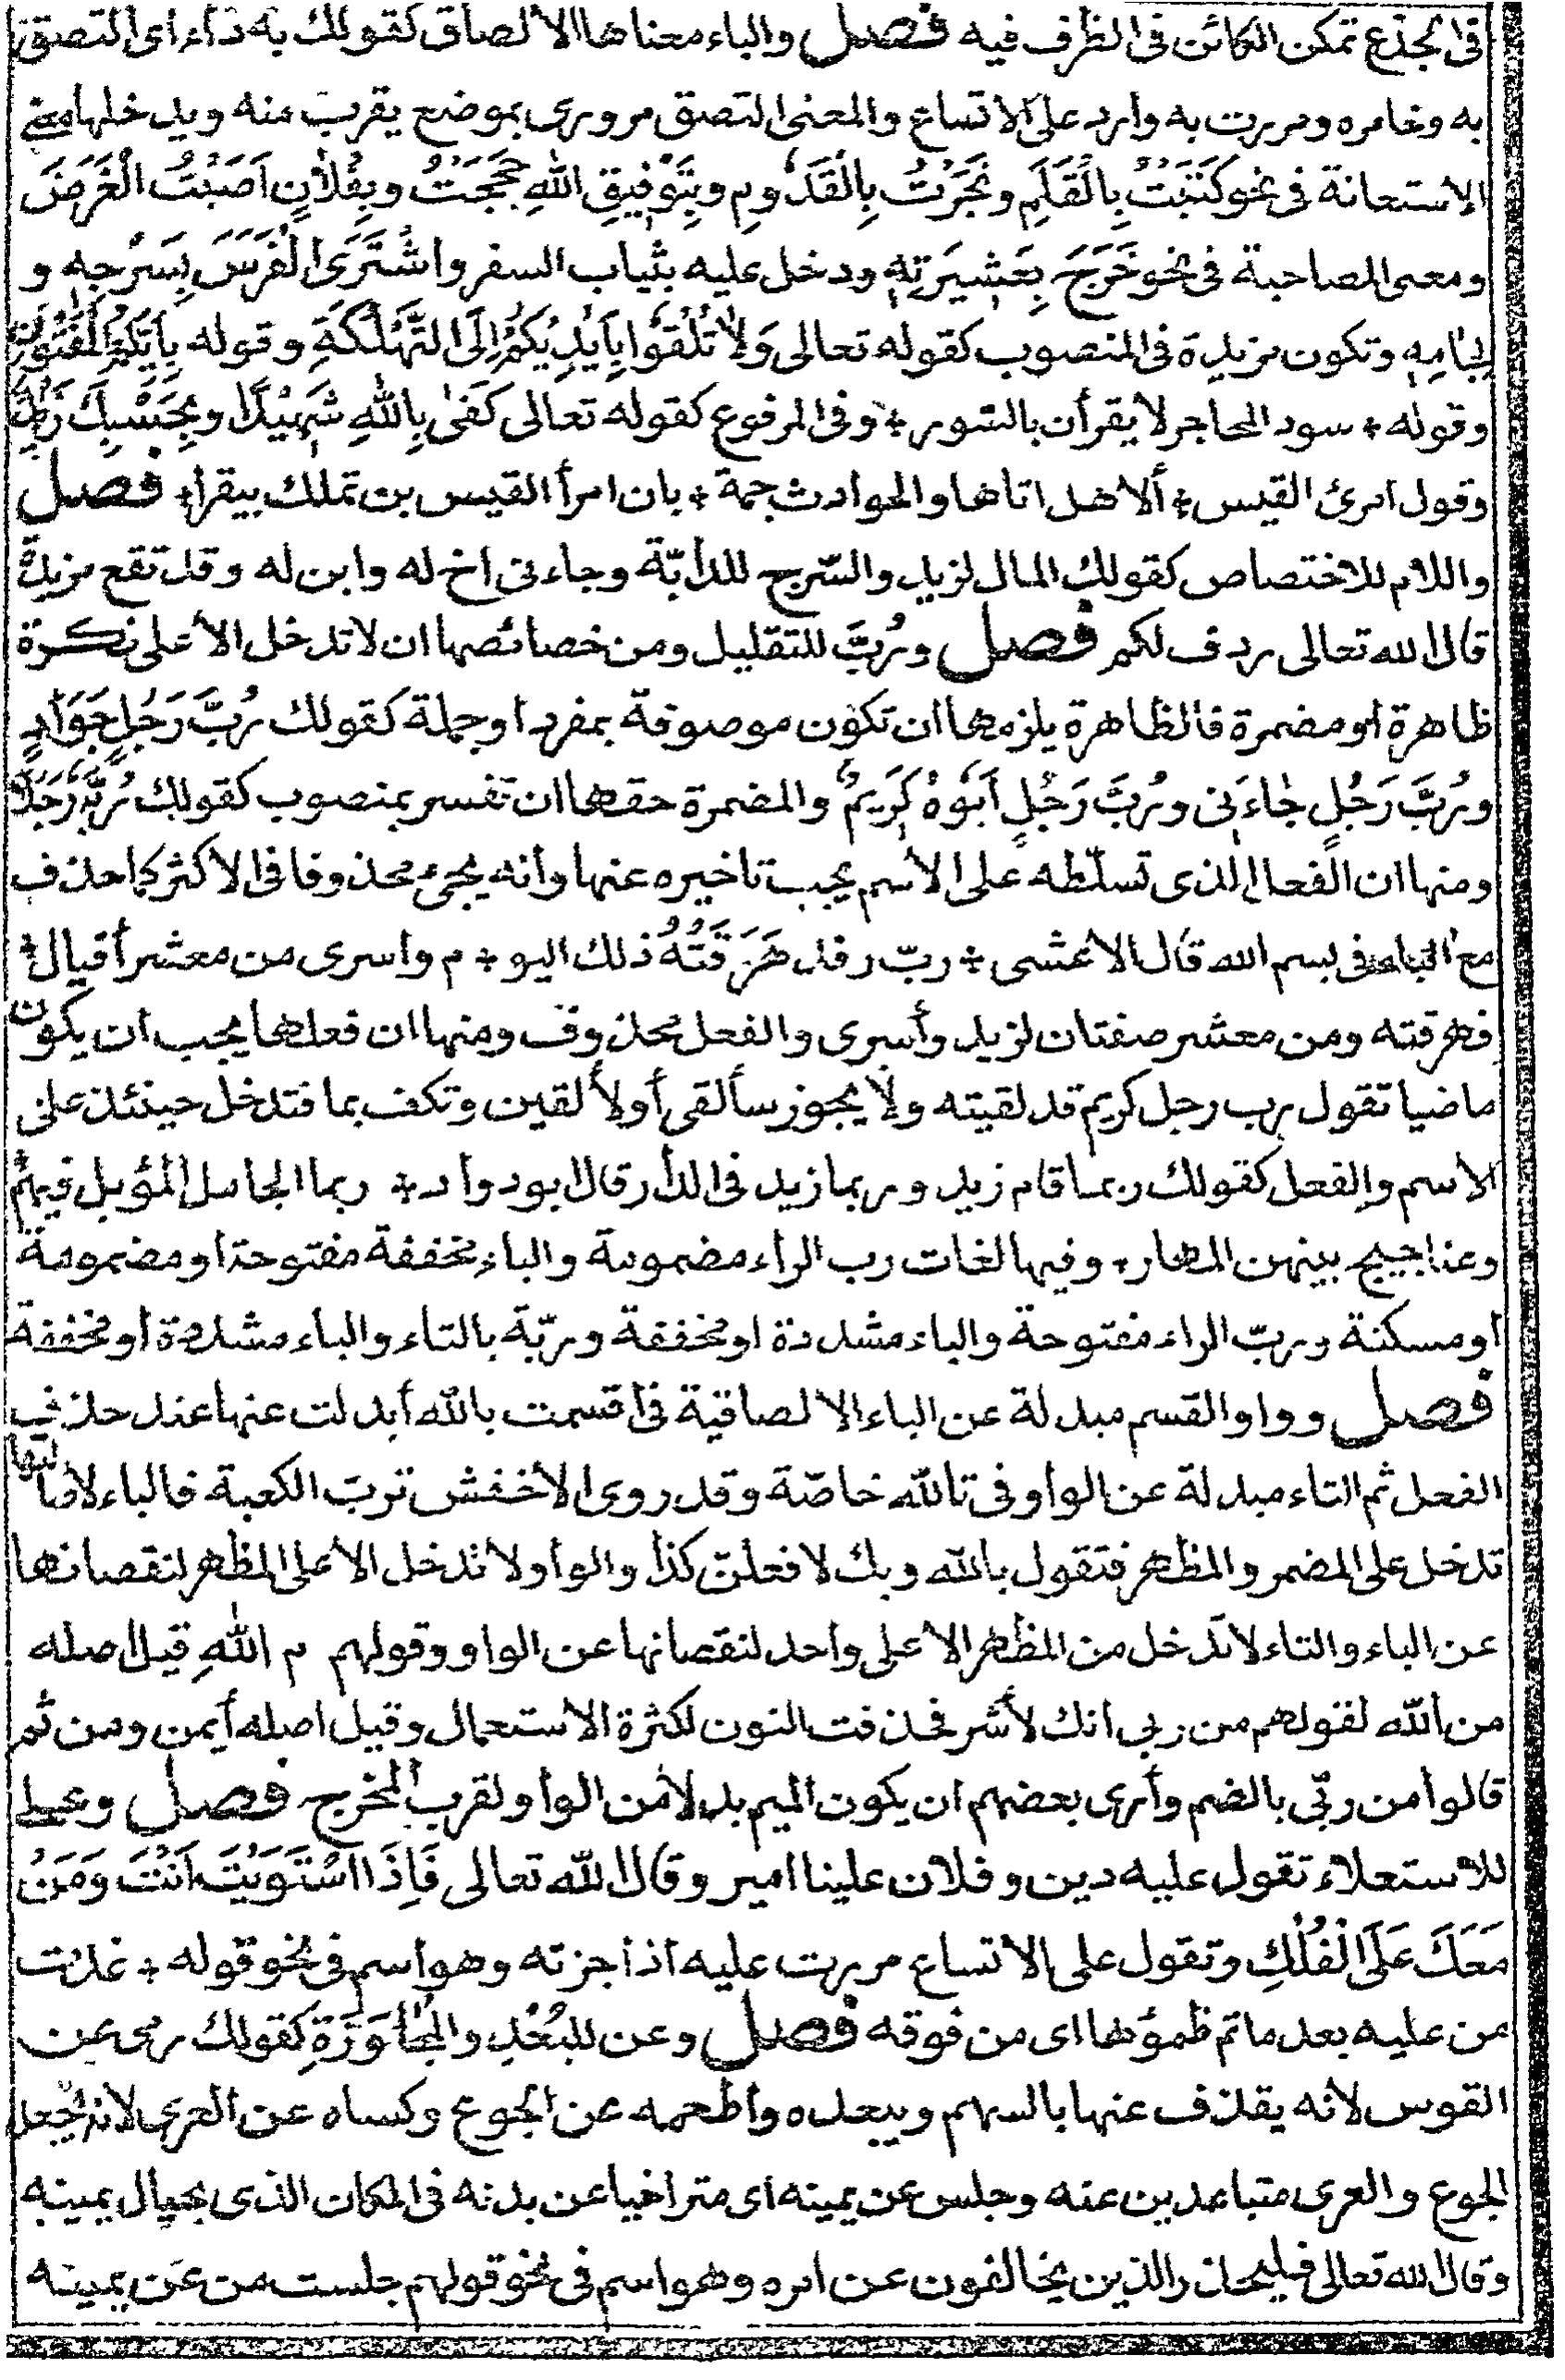 فى الجذع تمكن الكائن فى الظرف فيه فصل والباء معناها الالصاق كقولك به داء اى التصق
به وخامره ومررت به وارد على الاتساع والمعنى التصق مرورى بموضع يقرب منه ويدخلها معنى
الاستعانة فى نحو كَتَبْتُ بِالْقَلَمِ ونَجَرْتُ بِالْقَدُومِ وبِتَوْفِيقِ اللهِ حَجَجْتُ وبِفُلَانٍ اَصَبْتُ الْغَرَضَ
ومعنى المصاحبة فى نحو خَرَجَ بِعَشِيرَتِهِ ودخل عليه بثياب السفر واشْتَرَى الْفَرَسَ بِسَرْجِهِ و
لِجَامِهِ وتكون مزيدة فى المنصوب كقوله تعالى وَلَا تُلْقُوا بِاَيْدِيكُمْ اِلَى التَّهْلُكَةِ وقوله بِاَيِّكُمُ الْمَفْتُونُ
وقوله ؞ سود المحاجر لا يقرأن بالسور ؞ وفى المرفوع كقوله تعالى كَفَى بِاللهِ شَهِيْدًا وبِحَسْبِكَ زَيْدٌ
وقول امرئ القيس ؞ ألا هل اتاها والحوادث جمة ؞ بان امرأ القيس بن تملك بيقرا ؞ فصل
واللام للاختصاص كقولك المال لزيد والسّرج للدابّة وجاءنى اخ له وابن له وقد تقع مزيدة
قال الله تعالى ردف لكم فصل ورُبَّ للتقليل ومن خصائصها ان لا تدخل الا على نكرة
ظاهرة او مضمرة فالظاهرة يلزمها ان تكون موصوفة بمفرد او جملة كقولك رُبَّ رَجُلٍ جَوَادٍ
ورُبَّ رَجُلٍ جَاءَنِى ورُبَّ رَجُلٍ اَبُوهُ كَرِيمٌ والمضمرة حقها ان تفسر بمنصوب كقولك رُبَّهُ رَجُلًا
ومنها ان الفعل الذى تسلّطه على الاسم يجب تاخيره عنها وانه يجئ محذوفا فى الاكثر كما حذف
مع الباء فى بسم الله قال الاعشى ؞ ربّ رفد هَرَقْتَهُ ذلك اليو ؞ م واسرى من معشر أقيال ؞
فهرقته ومن معشر صفتان لزيد وأسرى والفعل محذوف ومنها ان فعلها يجب ان يكون
ماضيا تقول رب رجل كريم قد لقيته ولا يجوز سألقى أو لألقين وتكف بما فتدخل حينئذ على
الاسم والفعل كقولك ربما قام زيد وربما زيد فى الدار قال ابو دواد ؞ ربما الجامل المؤبل فيهم
وعناجيج بينهن المهار ؞ وفيها لغات رب الراء مضمومة والباء مخففة مفتوحة او مضمومة
او مسكنة وربّ الراء مفتوحة والباء مشددة او مخففة وربّة بالتاء والباء مشددة او مخففة
فصل وواو القسم مبدلة عن الباء الالصاقية فى اقسمت بالله أبدلت عنها عند حذف
الفعل ثم التاء مبدلة عن الواو فى تالله خاصّة وقد روى الأخفش تربّ الكعبة فالباء لاصالتها
تدخل على المضمر والمظهر فتقول بالله وبك لافعلنّ كذا والواو لا تدخل الا على المظهر لنقصانها
عن الباء والتاء لا تدخل من المظهر الا على واحد لنقصانها عن الواو وقولهم م اللهِ قيل اصله
من الله لقولهم من ربى انك لأشر فحذفت النون لكثرة الاستعمال وقيل اصله أيمن ومن ثم
قالوا من ربّى بالضم وأرى بعضهم ان يكون الميم بدلا من الواو لقرب المخرج فصل وعلى
للاستعلاء تقول عليه دين وفلان علينا امير وقال الله تعالى فَاِذَا اسْتَوَيْتَ اَنْتَ وَمَنْ
مَعَكَ عَلَى الْفُلْكِ وتقول على الاتساع مررت عليه اذا جزته وهو اسم فى نحو قوله ؞ غدت
من عليه بعد ما تم ظمؤها اى من فوقه فصل وعن للبُعْدِ والمُجَاوَزَةِ كقولك رمى عن
القوس لانه يقذف عنها بالسهم ويبعده وأطعمه عن الجوع وكساه عن العرى لانه يجعل
الجوع والعرى متباعدين عنه وجلس عن يمينه اى متراخيا عن بدنه فى المكان الذى بحيال يمينه
وقال الله تعالى فليحذر الذين يخالفون عن امره وهو اسم فى نحو قولهم جلست من عن يمينه